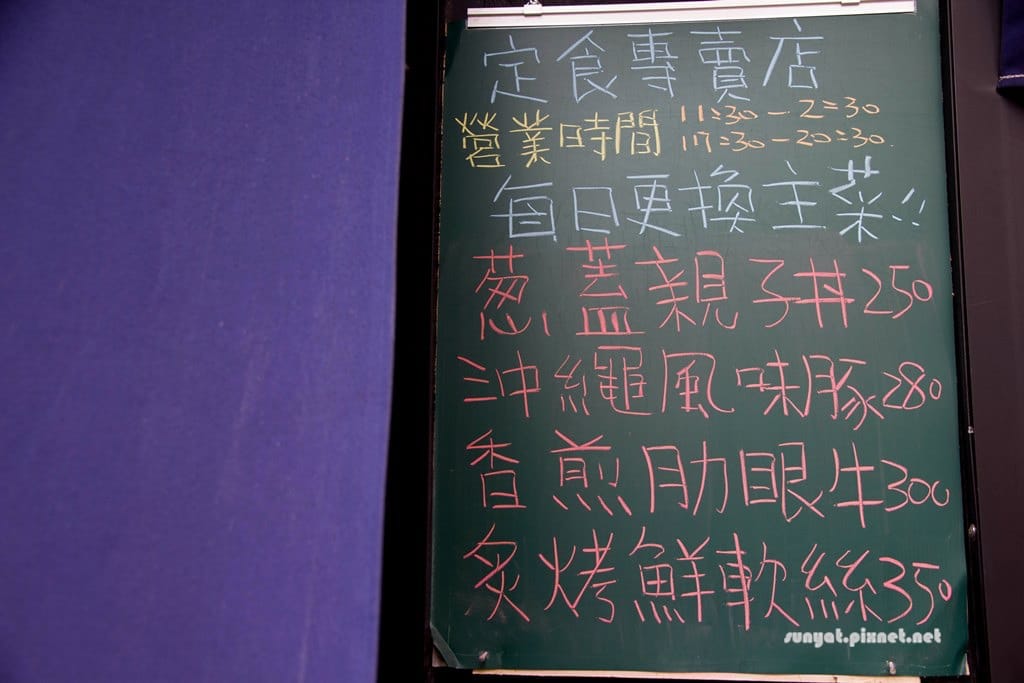 定食專賣店
營業時間 11:30-2:30
17:30-20:30
每日更換主菜!!
葱蓋親子丼250
沖繩風味豚280
香煎肋眼牛300
炙烤鮮軟絲350
sunyat.pixnet.net